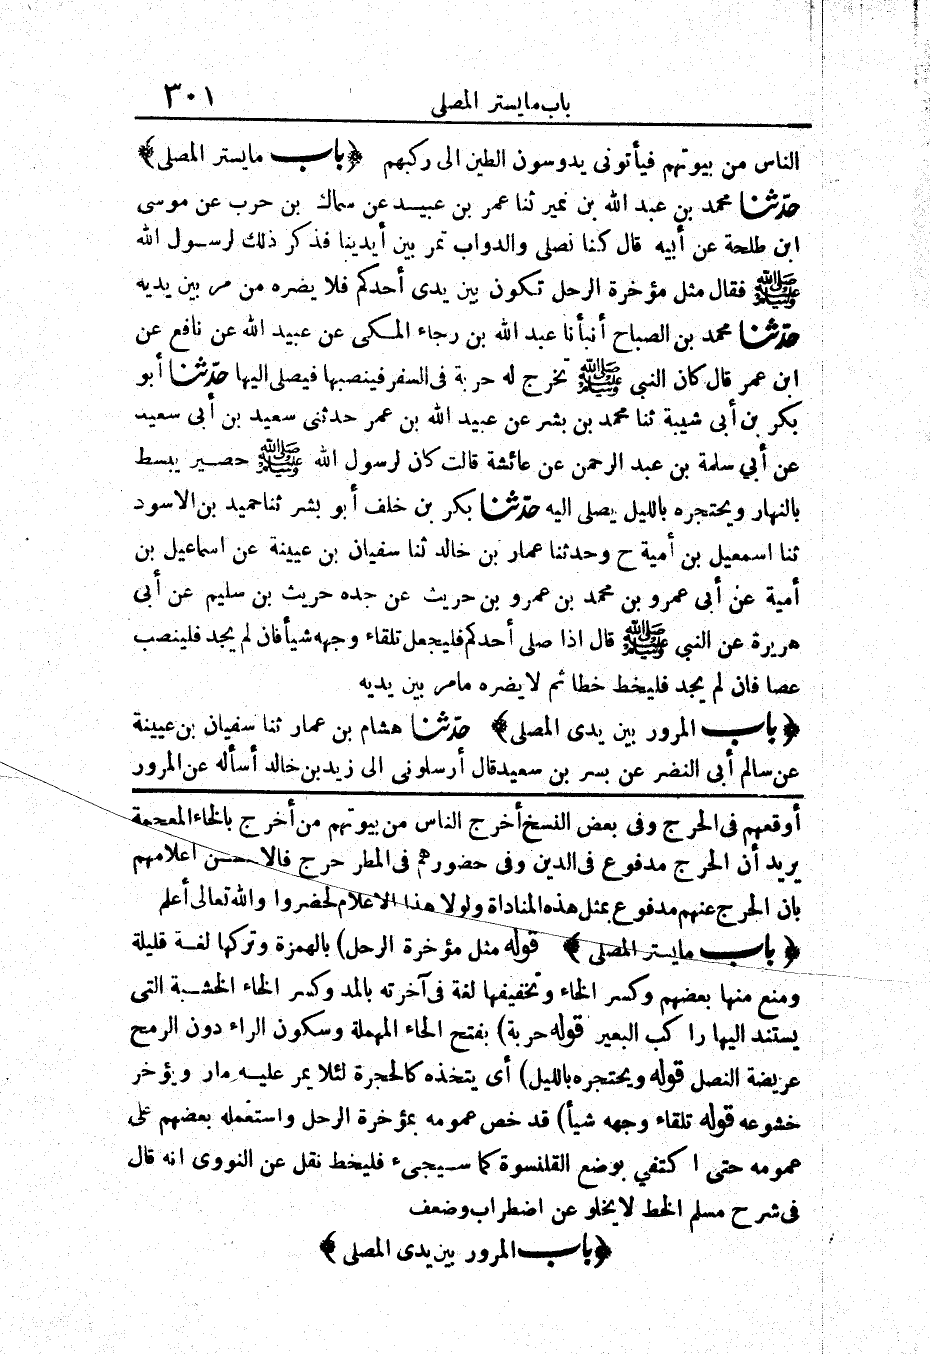 باب ما يستر المصلى ٣٠١
الناس من بيوتهم فيأتونى يدوسون الطين الى ركبهم ﴿باب ما يستر المصلى﴾
حدّثنا محمد بن عبد الله بن نمير ثنا عمر بن عبيد عن سماك بن حرب عن موسى
ابن طلحة عن أبيه قال كنا نصلى والدواب تمر بين أيدينا فذكر ذلك لرسول الله
ﷺ فقال مثل مؤخرة الرحل تكون بين يدى أحدكم فلا يضره من مر بين يديه
حدّثنا محمد بن الصباح أنبأنا عبد الله بن رجاء المكى عن عبيد الله عن نافع عن
ابن عمر قال كان النبي ﷺ تخرج له حربة فى السفر فينصبها فيصلى اليها حدّثنا أبو
بكر بن أبى شيبة ثنا محمد بن بشر عن عبيد الله بن عمر حدثنى سعيد بن أبى سعيد
عن أبي سلمة بن عبد الرحمن عن عائشة قالت كان لرسول الله ﷺ حصير يبسط
بالنهار ويحتجره بالليل يصلى اليه حدّثنا بكر بن خلف أبو بشر ثنا حميد بن الاسود
ثنا اسمعيل بن أمية ح وحدثنا عمار بن خالد ثنا سفيان بن عيينة عن اسماعيل بن
أمية عن أبى عمرو بن محمد بن عمرو بن حريث عن جده حريث بن سليم عن أبى
هريرة عن النبي ﷺ قال اذا صلى أحدكم فليجعل تلقاء وجهه شيأ فان لم يجد فلينصب
عصا فان لم يجد فليخط خطا ثم لا يضره ما مر بين يديه
﴿باب المرور بين يدى المصلى﴾ حدّثنا هشام بن عمار ثنا سفيان بن عيينة
عن سالم أبى النضر عن بسر بن سعيد قال أرسلونى الى زيد بن خالد أسأله عن المرور
أوقعهم فى الحرج وفى بعض النسخ أخرج الناس من بيوتهم من أخرج بالخاء المعجمة
يريد أن الحرج مدفوع فى الدين وفى حضورهم فى المطر حرج فالاحسن اعلامهم
بان الحرج عنهم مدفوع بمثل هذه المناداة ولولا هذا الاعلام لحضروا والله تعالى أعلم
﴿باب ما يستر المصلى﴾ قوله مثل مؤخرة الرحل) بالهمزة وتركها لغة قليلة
ومنع منها بعضهم وكسر الخاء وتخفيفها لغة فى آخرته بالمد وكسر الخاء الخشبة التى
يستند اليها راكب البعير قوله حربة) بفتح الحاء المهملة وسكون الراء دون الرمح
عريضة النصل قوله ويحتجره بالليل) أى يتخذه كالحجرة لئلا يمر عليه مار ويؤخر
خشوعه قوله تلقاء وجهه شيأ) قد خص عمومه بمؤخرة الرحل واستعمله بعضهم على
عمومه حتى اكتفي بوضع القلنسوة كما سيجىء فليخط نقل عن النووى انه قال
فى شرح مسلم الخط لا يخلو عن اضطراب وضعف
﴿باب المرور بين يدى المصلى﴾